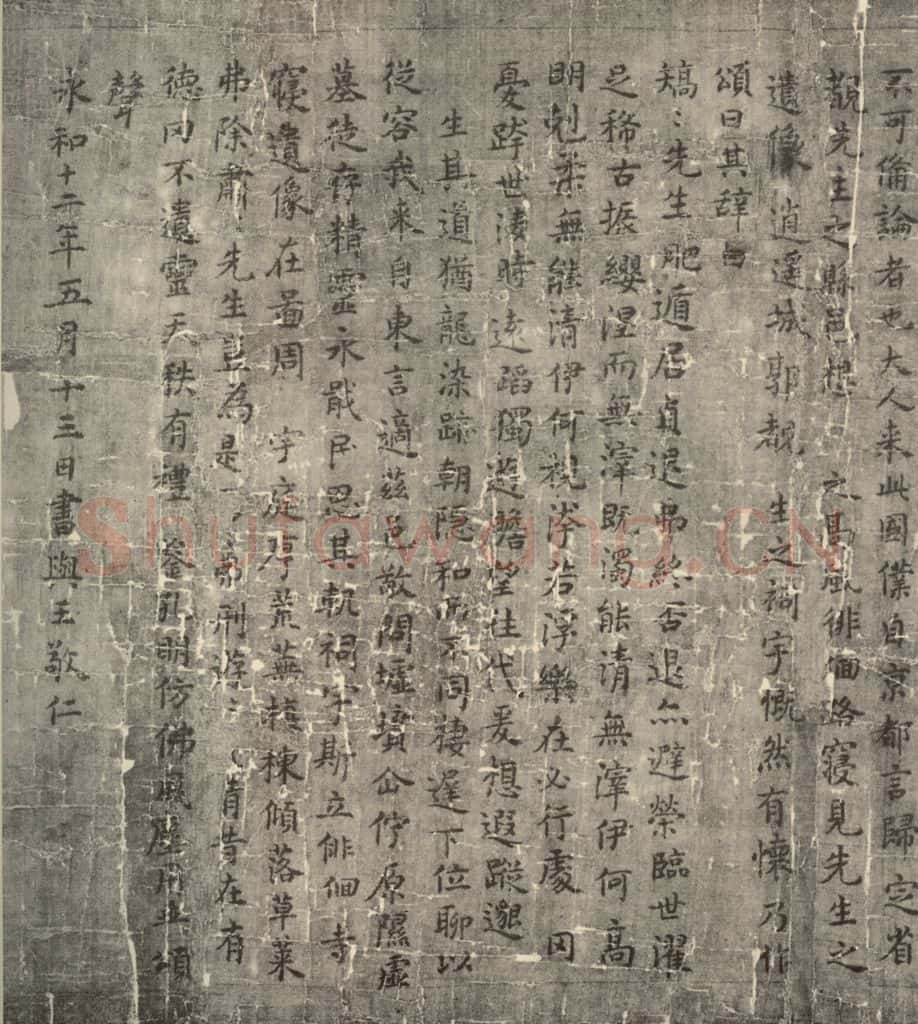 不可備論者也大人来此國僕自京都言歸定省
覩先生之縣邑想之高風徘徊路寢見先生之
遺像逍遙城郭覩生之祠宇慨然有懷乃作
頌曰其辭曰
矯〻先生肥遁居貞退弗終否退亦避榮臨世濯
足稀古振纓涅而無滓既濁能清無滓伊何高
明剋柔無能清伊何視汙若浮樂在必行處罔
憂跨世凌時遠蹈獨遊瞻望往代爰想遐蹤邈
生其道猶龍染跡朝隱和而不同棲遲下位聊以
從容我来自東言適茲邑敬問墟墳企佇原隰虛
墓徒存精靈永戢民思其軌祠宇斯立徘徊寺
寢遺像在啚周宇庭序荒蕪榱棟傾落草萊
弗除肅〻先生豈焉是〻弗刑遊〻情昔在有
德罔不遺靈天秩有禮鑒孔明仿佛風塵用垂頌
聲
永和十二年五月十三日書與王敬仁
Shufawang.CN